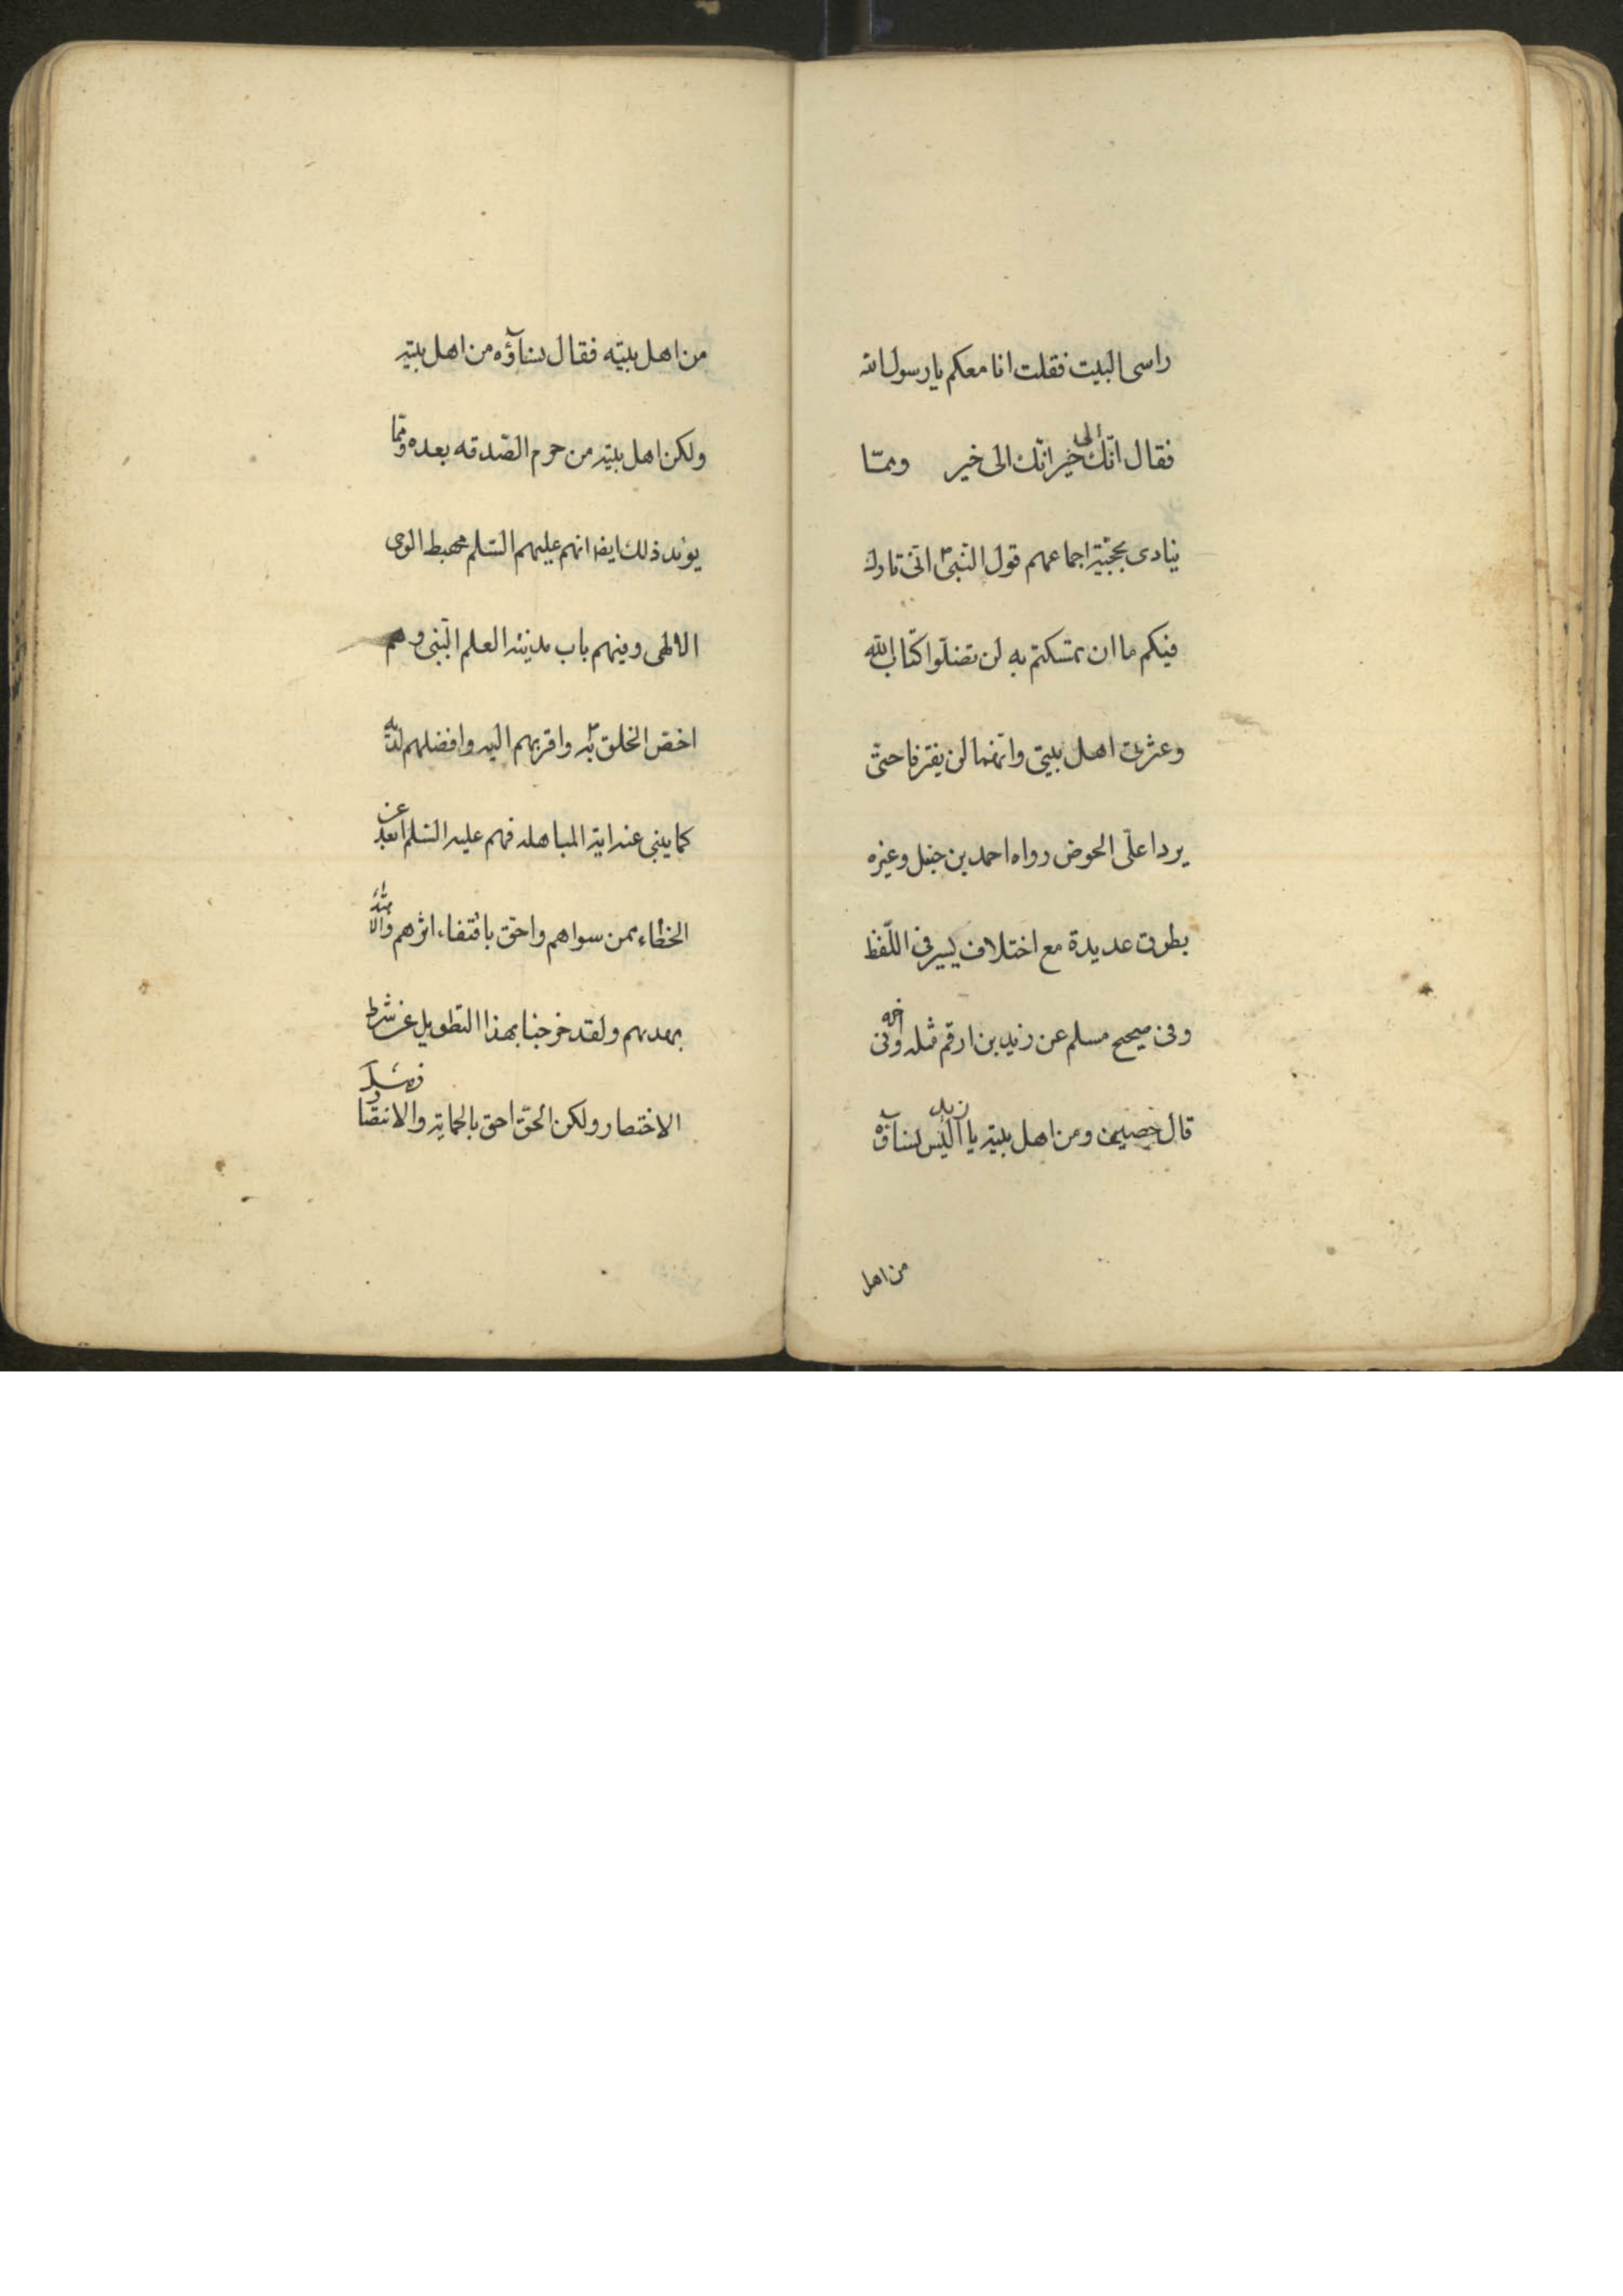 راسى البيت فقلت انا معكم يا رسول الله
فقال انّك الى خير انّك الى خير وممّا
ينادى بحجيّة اجماعهم قول النّبىّ انّى تارك
فيكم ما ان تمسّكتم به لن تضلّوا كتاب الله
وعترتى اهل بيتى وانّهما لن يفترقا حتّى
يردا علىّ الحوض رواه احمد بن حنبل وغيره
بطرق عديدة مع اختلاف يسير فى اللّفظ
وفى صحيح مسلم عن زيد بن ارقم مثله وفى اخره
قال حصين ومن اهل بيته يا زيد اليس نساؤه
من اهل
من اهل بيته فقال نساؤه من اهل بيته
ولكن اهل بيته من حرم الصّدقه بعده وممّا
يؤيد ذلك ايضا انهم عليهم السّلم مهبط الوحى
الالهى وفيهم باب مدينة العلم النّبى وهم
اخصّ الخلق به واقربهم اليه وافضلهم لديه
كما ينبى عنه اية المباهله فهم عليه السّلم ابعد عن
الخطاء ممن سواهم واحقّ باقتفاء اثرهم والاهتداء
بهديهم ولقد خرجنا بهذا التطويل عن شرط
الاختصار ولكن الحقّ احق بالحماية والانتصار